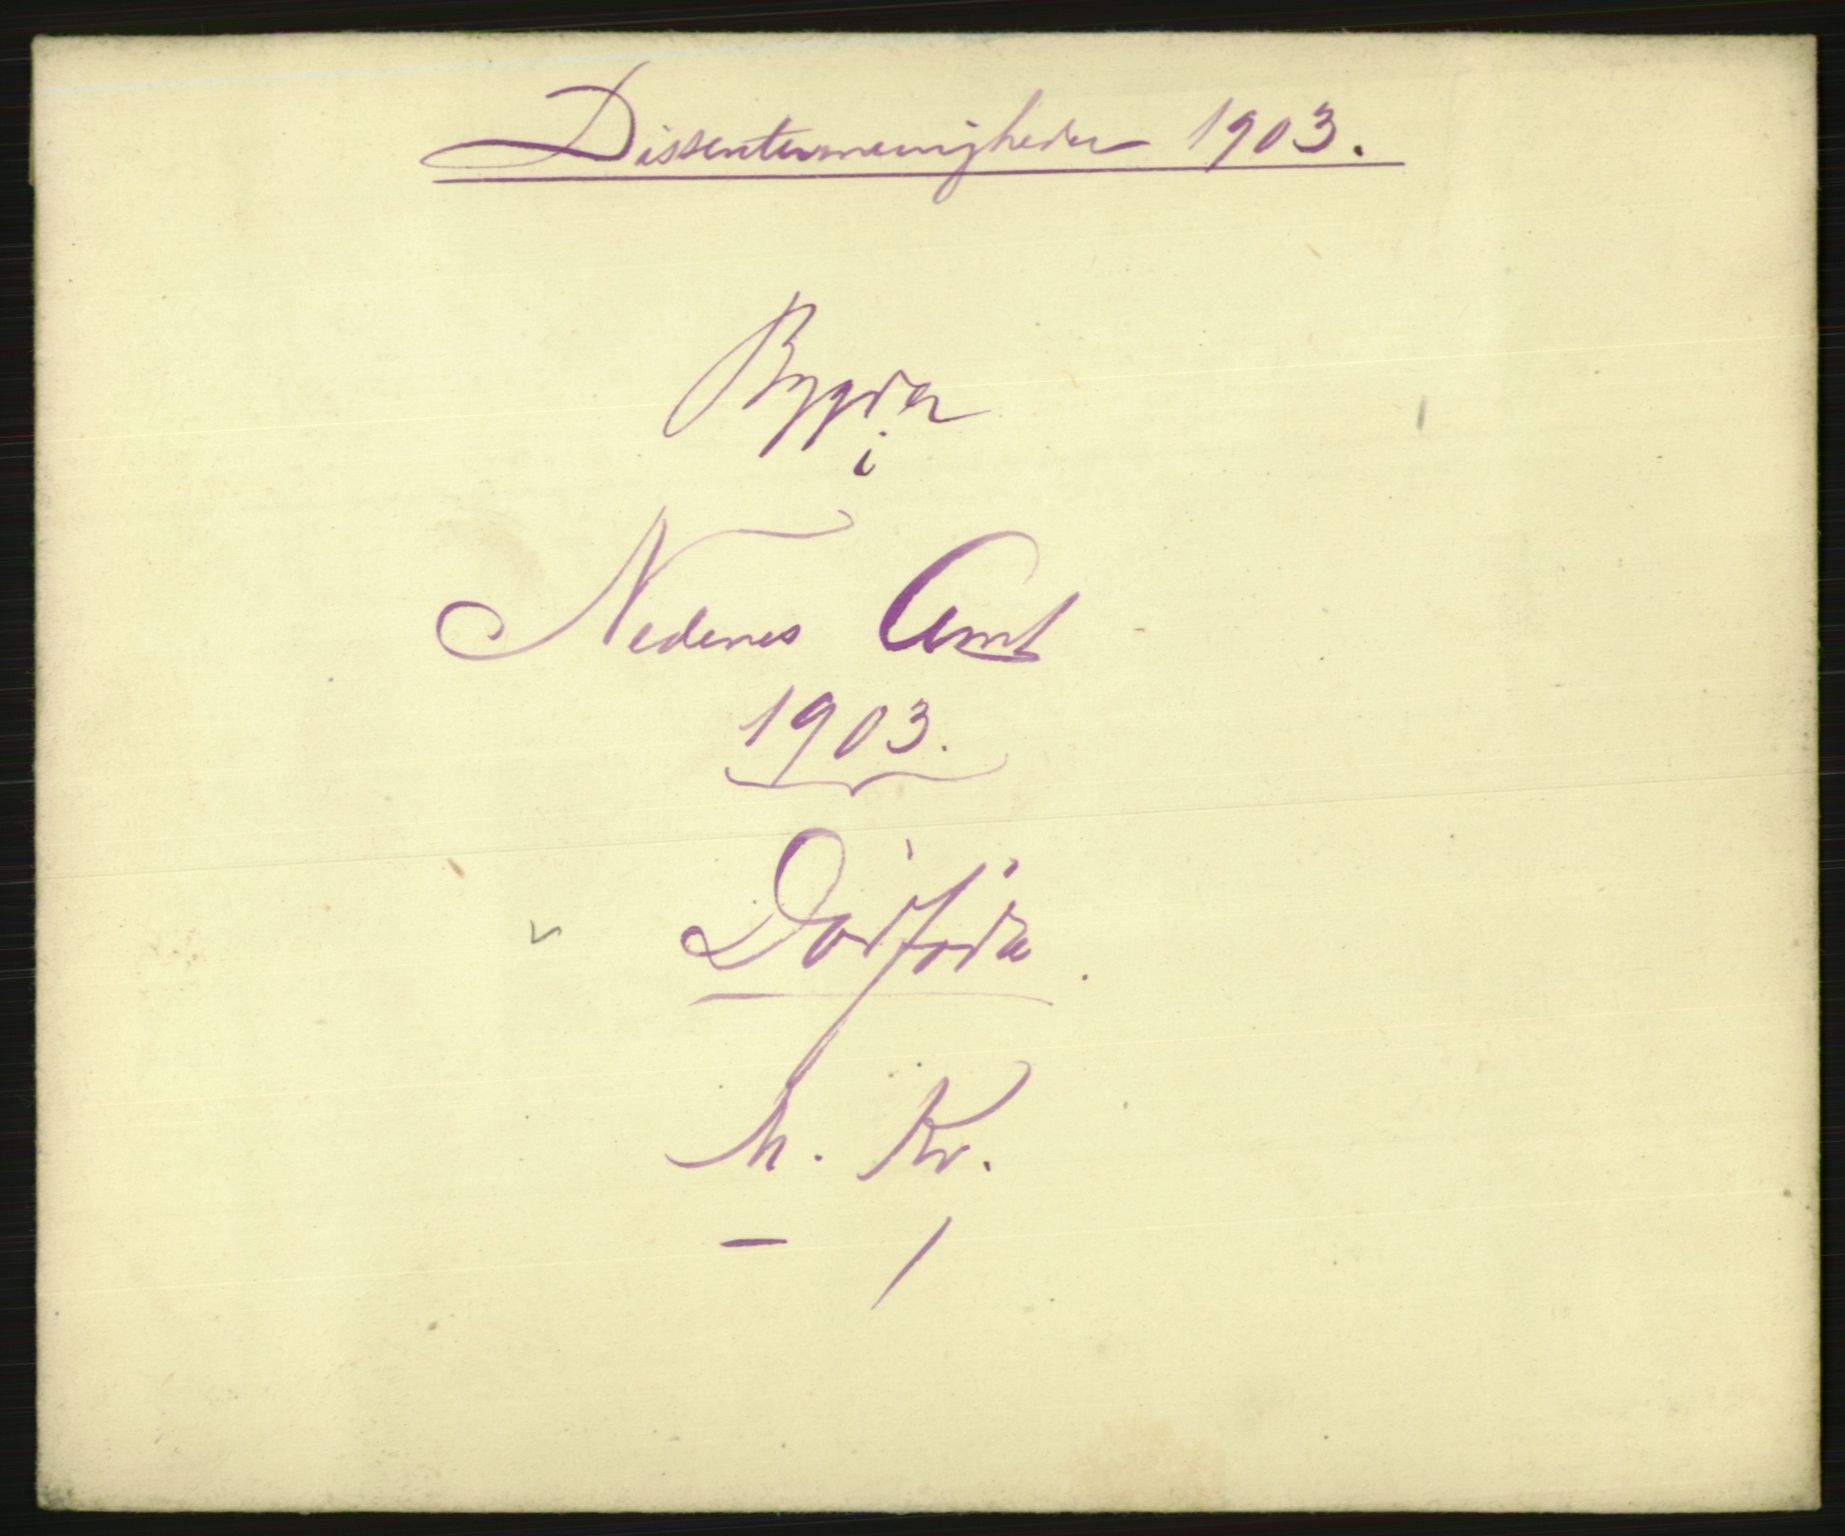 Dissentermenigheder 1903.
Bygder
i
Nedenes Amt
1903.
Dødfødte.
M. Kv.
– 1